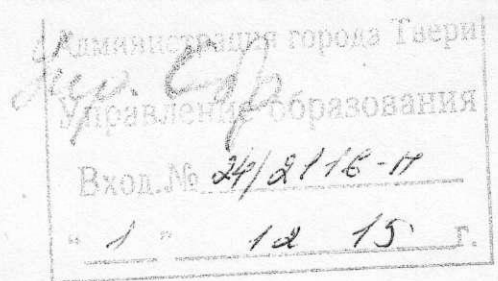 Администрация города Твери
Управление образования
Вход.№ 24/2116-н
" 1 " 12 15 г.